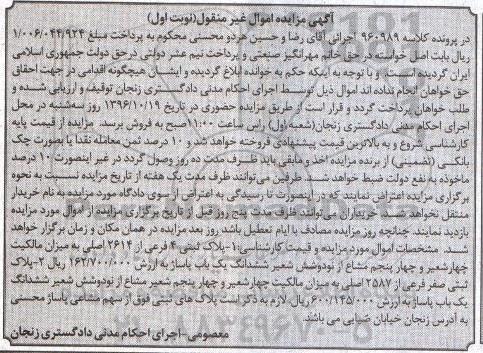 آگهی مزایده اموال غیر منقول(نوبت اول)
در پرونده کلاسه ۹۶۰۹۸۹ اجرائی آقای رضا و حسین هردو محسنی محکوم به پرداخت مبلغ ۱/۰۰۶/۰۴۴/۹۲۴
ریال بابت اصل خواسته در حق خانم مهرانگیز صنیعی و پرداخت نیم عشر دولتی در حق دولت جمهوری اسلامی
ایران گردیده است. و با توجه به اینکه حکم به خوانده ابلاغ گردیده و ایشان هیچگونه اقدامی در جهت احقاق
حق خواهان انجام نداده اند اموال ذیل توسط اجرای احکام مدنی دادگستری زنجان توقیف و ارزیابی شده و
طلب خواهان پرداخت گردد و قرار است از طریق مزایده حضوری در تاریخ ۱۳۹۶/۱۰/۱۹ روز سه‌شنبه در محل
اجرای احکام مدنی دادگستری زنجان(شعبه اول) راس ساعت ۱۱:۰۰صبح به فروش برسد. مزایده از قیمت پایه
کارشناسی شروع و به بالاترین قیمت پیشنهادی فروخته خواهد شد و ۱۰ درصد ثمن معامله نقدا یا بصورت چک
بانکی (تضمینی) از برنده مزایده اخذ و مابقی باید ظرف مدت ده روز وصول گردد در غیر اینصورت ۱۰ درصد
ماخوذه به نفع دولت ضبط خواهد شد. طرفین می‌توانند ظرف مدت یک هفته از تاریخ مزایده نسبت به نحوه
برگزاری مزایده اعتراض نمایند که در اینصورت تا رسیدگی به اعتراض از سوی دادگاه مورد مزایده به نام خریدار
منتقل نخواهد شد. خریداران می‌توانند ظرف مدت پنج روز قبل از تاریخ برگزاری مزایده از اموال مورد مزایده
بازدید نمایند. چنانچه روز مزایده مصادف با ایام تعطیل باشد روز بعد مزایده در همان مکان و زمان برگزار خواهد
شد. مشخصات اموال مورد مزایده و قیمت کارشناسی:۱-پلاک ثبتی ۴ فرعی از ۲۶۱۴ اصلی به میزان مالکیت
چهارشعیر و چهار پنجم مشاع از نودوشش شعیر ششدانگ یک باب پاساژ به ارزش ۱۶۲/۷۰۰/۰۰۰ ریال ۲-پلاک
ثبتی صفر فرعی از ۲۵۸۷ اصلی به میزان مالکیت چهارشعیر و چهار پنجم شعیر مشاع از نودوشش شعیر ششدانگ
یک باب پاساژ به ارزش ۶۰۰/۱۴۵/۰۰۰ریال. لازم به ذکر است پلاک های ثبتی فوق از سهم مشاعی پاساژ محسنی
به آدرس زنجان خیابان ضیایی می باشد.
معصومی-اجرای احکام مدنی دادگستری زنجان